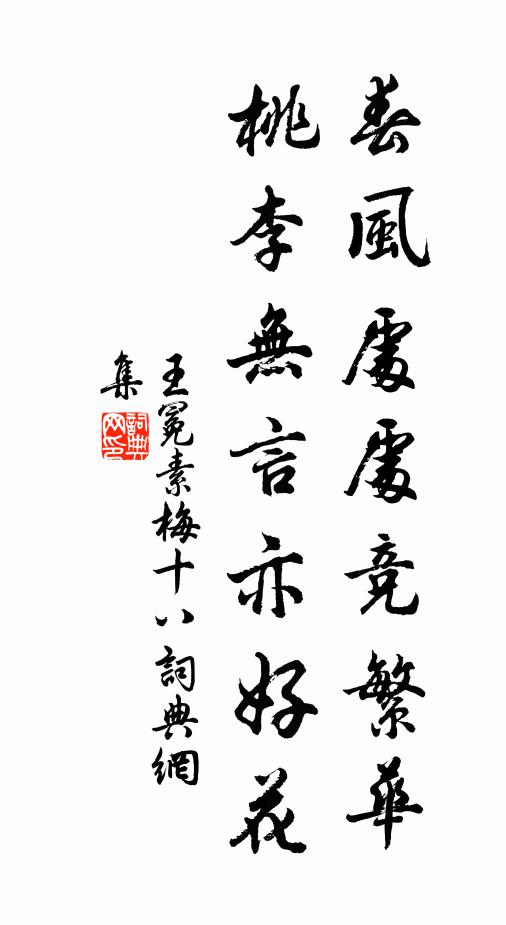 春風處處竞繁華
桃李無言亦好花
王冕素梅十八詞典網
集
詞典網印